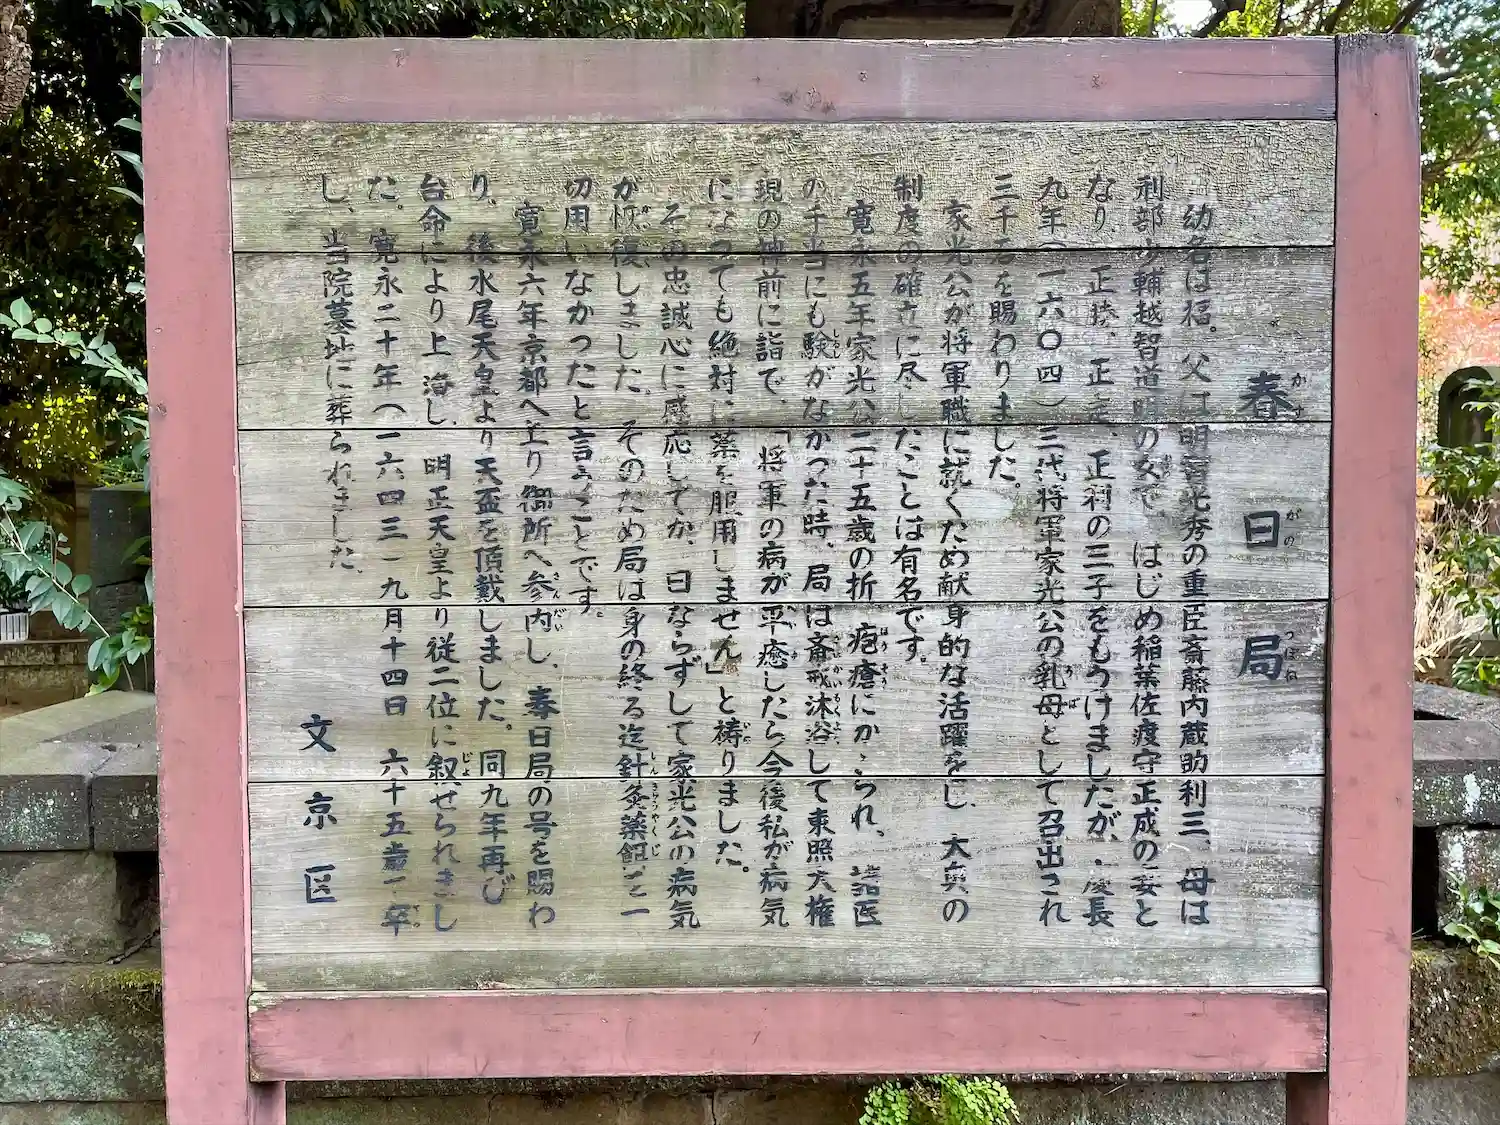 春日局
幼名は福。父は明智光秀の重臣斎藤内蔵助利三、母は
刑部少輔越智道明の女で、はじめ稲葉佐渡守正成の妾と
なり、正勝、正定、正利の三子をもうけましたが、慶長
九年(一六〇四)三代将軍家光公の乳母として召出され
三千石を賜わりました。
家光公が将軍職に就くため献身的な活躍をし、大奥の
制度の確立に尽したことは有名です。
寛永五年家光公二十五歳の折、疱瘡にかゝられ、諸医
の手当にも験がなかった時、局は斎戒沐浴して東照大権
現の神前に詣で、「将軍の病が平癒したら今後私が病気
になっても絶対に薬を服用しません」と祷りました。
その忠誠心に感応してか、日ならずして家光公の病気
が恢復しました。そのため局は身の終る迄針灸薬餌を一
切用いなかったと言うことです。
寛永六年京都へ上り御所へ参内し、春日局の号を賜わ
り、後水尾天皇より天盃を頂戴しました。同九年再び
台命により上洛し、明正天皇より従二位に叙せられまし
た。寛永二十年(一六四三)九月十四日 六十五歳で卒
し、当院墓地に葬られました。
文京区